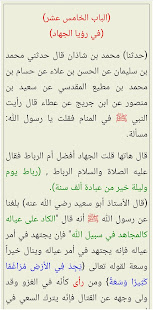 (الباب الخامس عشر)
(في رؤيا الجهاد)
(حدثنا) محمد بن شاذان قال حدثني محمد
بن سليمان عن الحسن بن علاء عن حسام بن
محمد بن مطيع المقدسي عن سعيد بن
منصور عن ابن جريج عن عطاء قال رأيت
النبي ﷺ في المنام فقلت يا رسول الله:
مسألة.
قال هاتها قلت الجهاد أفضل أم الرباط فقال
عليه الصلاة والسلام الرباط ، (رباط يوم
وليلة خير من عبادة ألف سنة).
(قال الأستاذ أبو سعيد رضي الله عنه) بلغنا
عن رسول الله ﷺ أنه قال "الكاد على عياله
كالمجاهد في سبيل الله" فإن يجتهد في أمر
عياله فإنه يجتهد في أمر عياله وينال خيراً
وسعة لقوله تعالى (يَجِدْ فِي الْأَرْضِ مُرَاغَمًا
كَثِيرًا وَسَعَةً) ومن رأى كأنه في الغزو وقد
ولى وجهه عن القتال فإنه يترك السعي في